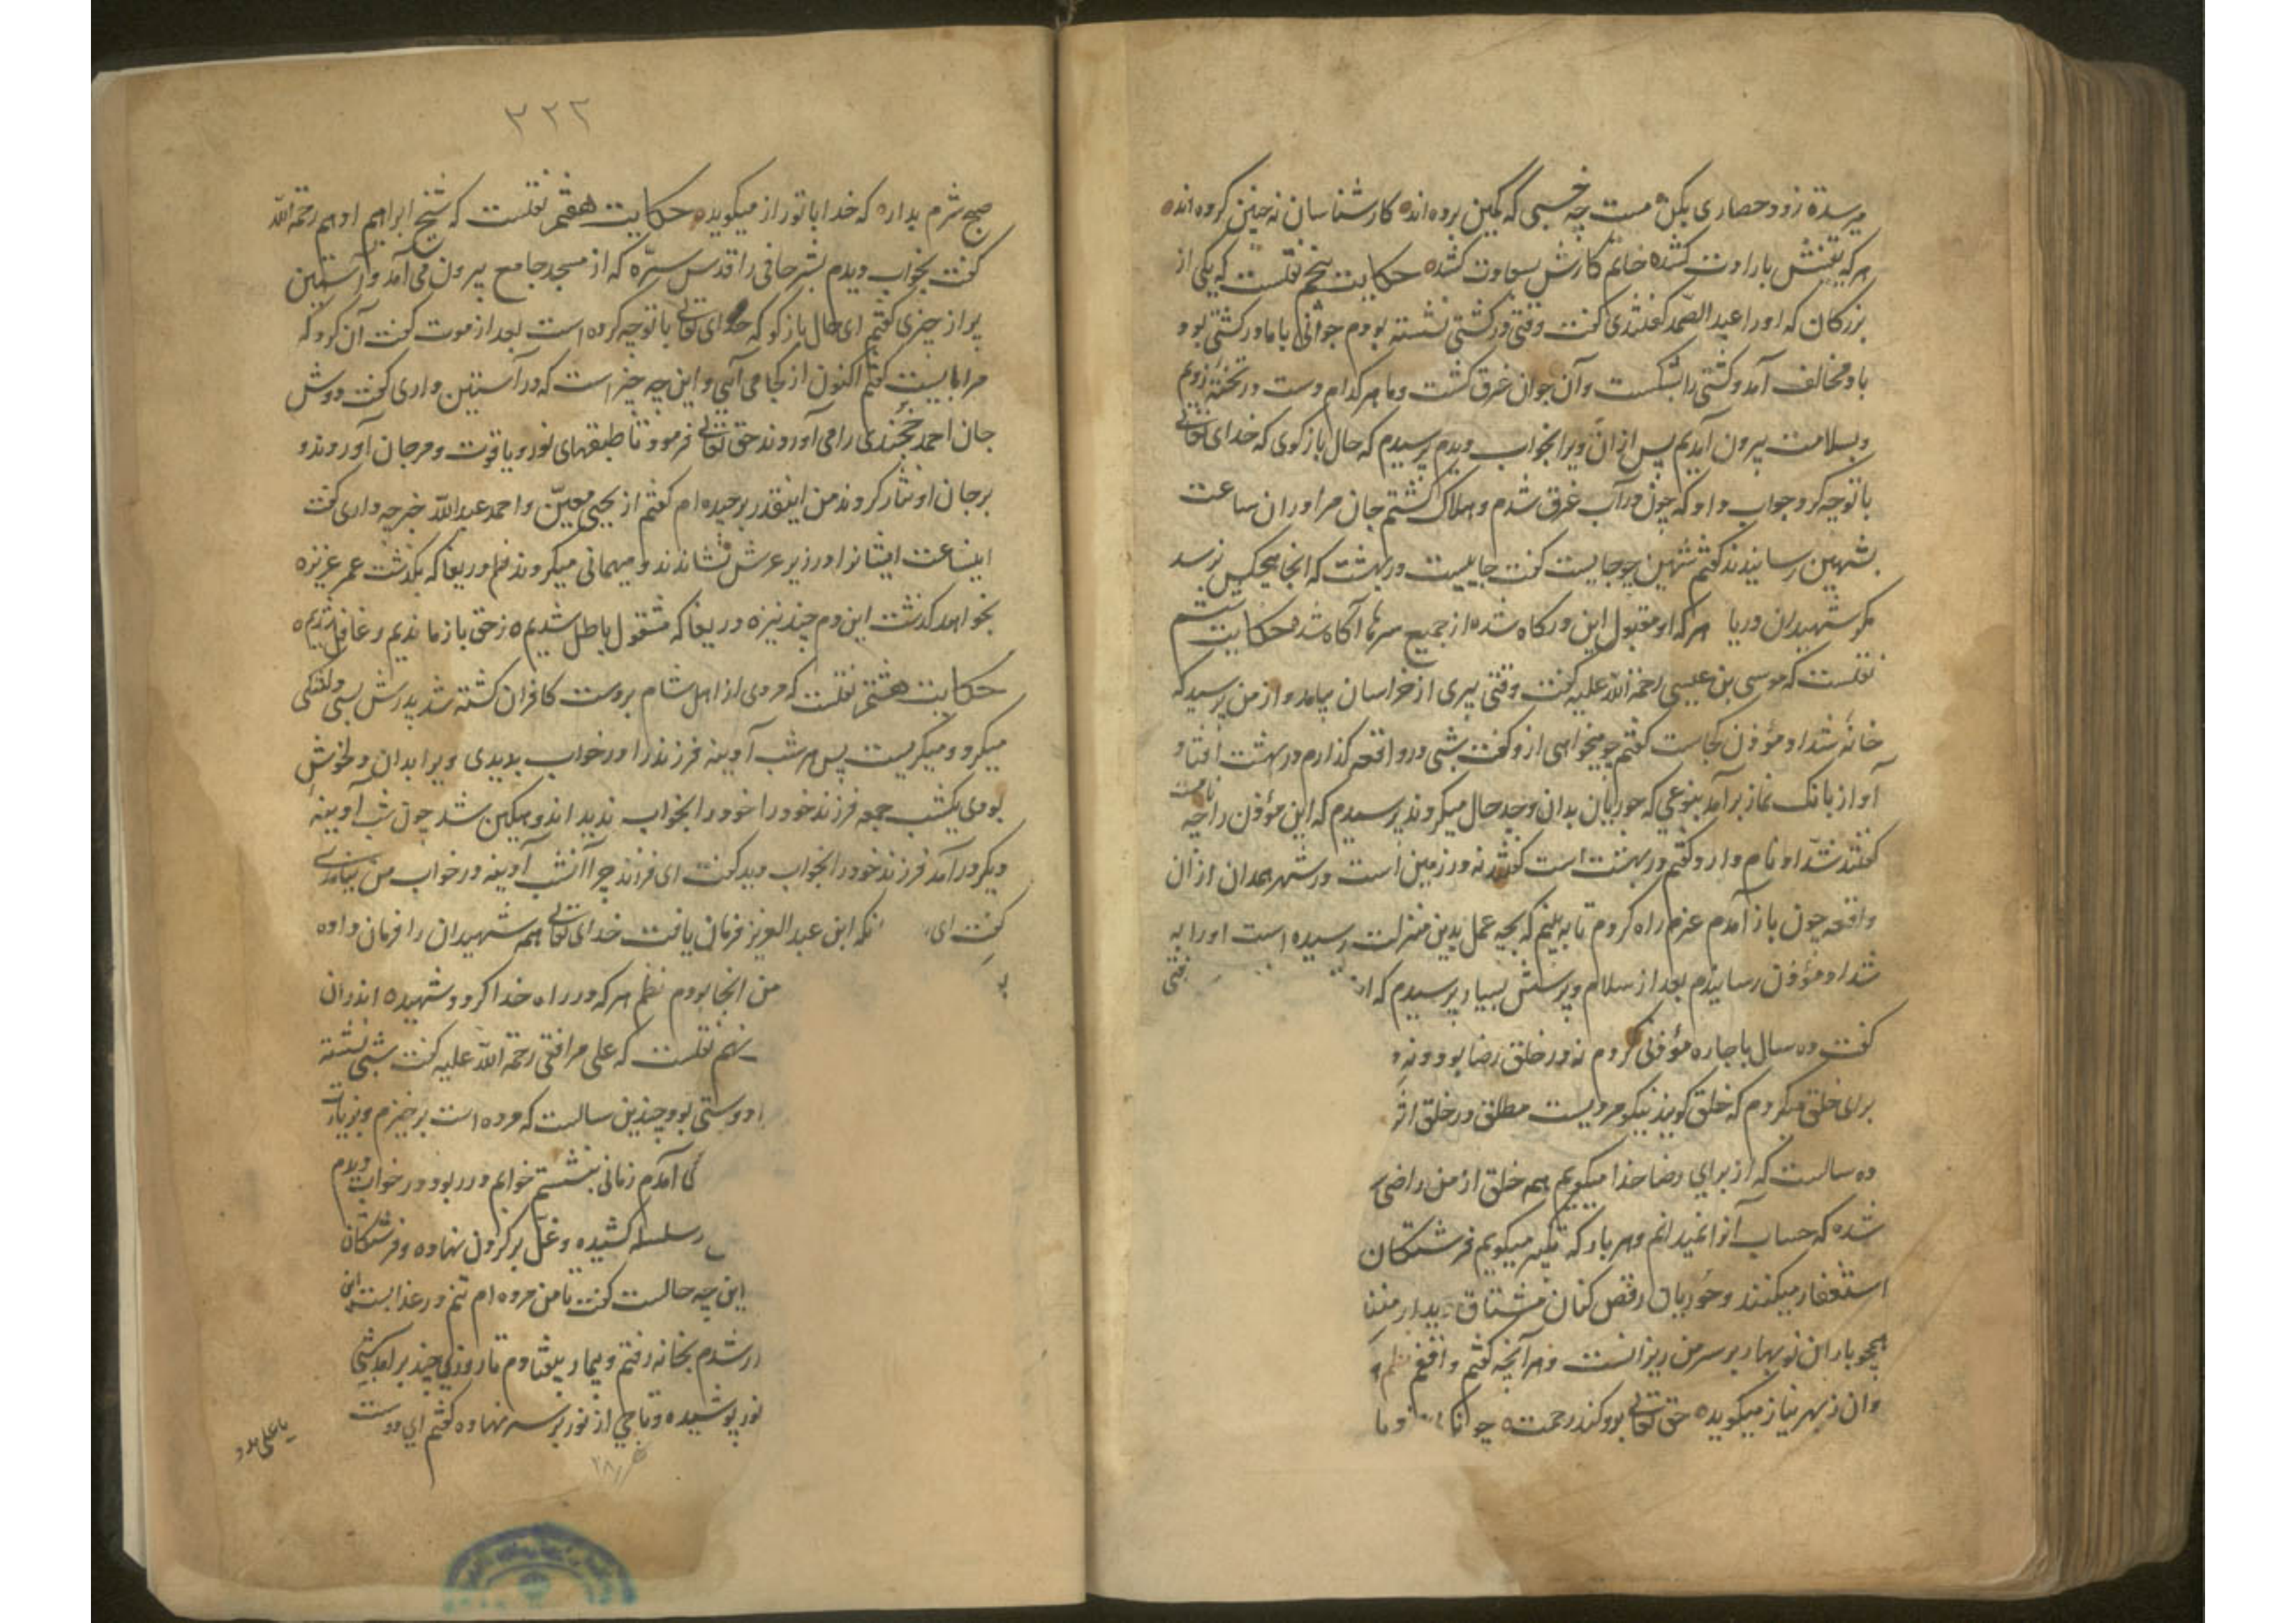 میرسد ه زود حصاری بکن مست چه خسبی که کمین برده‌اند ه کارشناسان نه چنین کرده‌اند ه
هرکه یقینش بارادت کشد ه خاتم کارش بسعادت کشد ه حکایت پنجم نقلست که یکی از
بزرکان که اورا عبد الصمد کفتندی کفت وقتی در کشتی نشسته بودم جوانی با ما در کشتی بود
باد مخالف آمد و کشتی را بشکست و آن جوان غرق کشت و ما هرکدام دست در تخته زدیم
و بسلامت بیرون آمدیم پس از آن ویرا بخواب دیدم پرسیدم که حال بازکوی که خدای تعالی
با تو چه کرد جواب داد که چون در آب غرق شدم و هلاک کشتم جان مرا در ان ساعت
بشهین رسانیدند کفتم شهین چو جایست کفت جاییست در بهشت که انجا هیچکس نرسد
مکر شهیدان دریا هرکه او مقبول این درکاه شد ه از جمیع سرها آکاه شد ه حکایت ششم
نقلست که موسی بن عیسی رحمة الله علیه کفت وقتی پیری از خراسان بیامد و از من پرسید که
خانه شداد مؤذن کجاست کفتم چو میخواهی ازو کفت شبی در واقعه کذارم در بهشت افتاد
آواز بانک نماز برآمد بنوعی که حوریان بدان وجد حال میکردند پرسیدم که این مؤذن را چه نامست
کفتند شداد نام دارد کفتم در بهشت است کفتند نه در زمین است در شهر همدان از ان
واقعه چون باز آمدم عزم راه کردم تا به بینم که بچه عمل بدین منزلت رسیده است اورا به
شداد مؤذن رسانیدم بعد از سلام و پرسش بسیار پرسیدم که از
کفت ده سال باجاره مؤذنی کردم نه در خلق رضا بود و نه
برای خلق میکردم که خلق کویند نیکو مردیست مطلق در خلق اثر
ده سالست که از برای رضا خدا میکویم همه خلق از من راضی
شده که حساب آنرا نمیدانم و هر بار که تکبیر میکویم فرشتکان
استغفار میکنند و حوریان رقص کنان مشتاق دیدار منند
همچو باران نوبهار بر سر من ریزانست و هر آنچه کفتم واقع نظم
وان ز بهر نیاز میکوید ه حق تعالی بدو کند رحمت ه
۲۳۲
صبح شرم بدار ه که خدا با تو راز میکوید ه حکایت هفتم نقلست که شیخ ابراهیم ادهم رحمة الله
کفت بخواب دیدم بشر حافی را قدس سره که از مسجد جامع بیرون می آمد و آستین
پر از چیزی کفتم ای حال بازکو که خدای تعالی با تو چه کرده است بعد از موت کفت آن کرد که
مرا بایست کفتم اکنون از کجا می آیی و این چه چیز است که در آستین داری کفت دوش
جان احمد خجندی را می آوردند حق تعالی فرمود تا طبقهای نور و یاقوت و مرجان آوردند و
بر جان او نثار کردند من اینقدر برچیده ام کفتم از یحیی معین و احمد عبد الله خبر چه داری کفت
اینساعت ایشانرا در زیر عرش نشاندند و میهمانی میکردند نظم دریغا که بکذشت عمر عزیز ه
بخواهد کذشت این دم چند نیز ه دریغا که مشغول باطل شدیم ه ز حق باز ماندیم و غافل شدیم ه
حکایت هشتم نقلست که مردی از اهل شام بر دست کافران کشته شد پدرش بسی دلتنکی
میکرد و میکریست پس هر شب آدینه فرزند را در خواب بدیدی و ویرا بدان دلخوش
بودی یکشب جمعه فرزند خود را خود را بخواب ندید اندوهکین شد چون شب آدینه
دیکر درآمد فرزند خود را بخواب دید کفت ای فرزند چرا آنشب آدینه در خواب من نیامدی
کفت ای انکه ابن عبد العزیز فرمان یافت خدای تعالی همه شهیدان را فرمان داده
من انجا بودم نظم هرکه در راه خدا کردد شهید ه اندران
نهم نقلست که علی مرافقی رحمة الله علیه کفت شبی نشسته
دوستی بود چندین سالست که مرده است برخیزم و بزیارت
آمدم زمانی بنشستم خوابم در ربود در خواب دیدم
سلسله کشیده و غل بر کردن نهاده و فرشتکان
این چه حالست کفت تا من مرده ام تنم در عذابست این
شدم بخانه رفتم و بیمار بیفتادم تا روزی چند برآمد شبی
نور پوشیده و تاجی از نور بر سر نهاده کفتم ای دوست
یا علی مدد